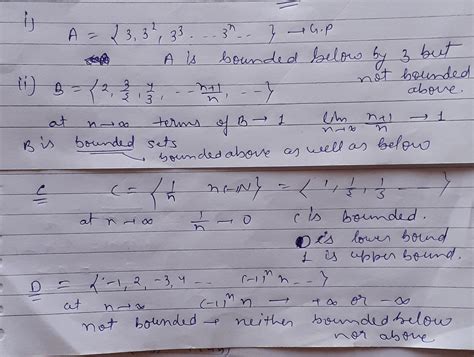 i) A = { 3, 3², 3³ ... 3ⁿ ... } → G.P
A is bounded below by 3 but
not bounded
above.
(ii) B = { 2, 3/2, 4/3, ... n+1/n, ... }
at n→∞ terms of B → 1 lim n→∞ n+1/n → 1
B is bounded sets
bounded above as well as below
C C = { 1/n n∈N } = { 1, 1/2, 1/3 ... }
at n→∞ 1/n → 0 C is bounded.
0 is lower bound
1 is upper bound.
D = { -1, 2, -3, 4 .. (-1)ⁿ n .. }
at n→∞ (-1)ⁿ n → +∞ or -∞
not bounded → neither bounded below
nor above